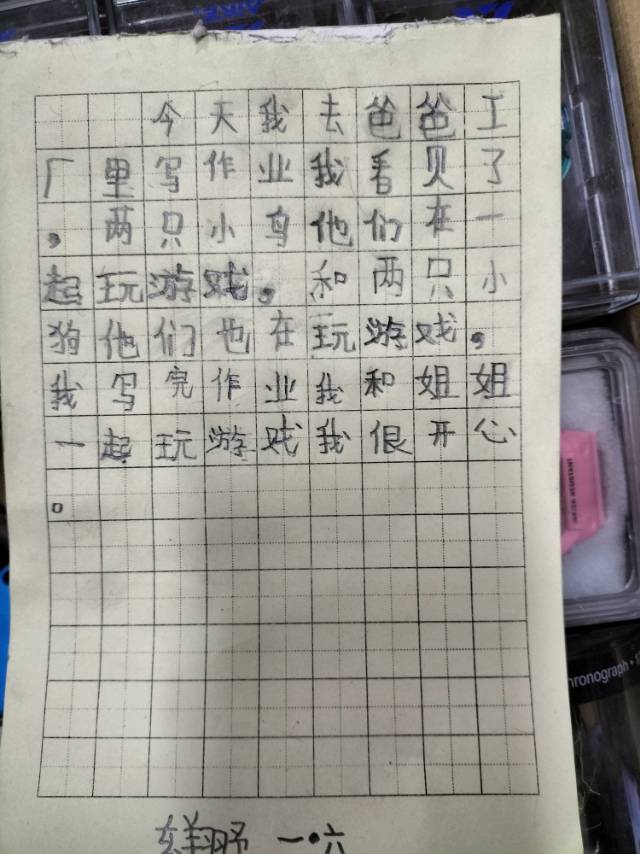 今天我去爸爸工
厂里写作业我看贝了
，两只小鸟他们在一
起玩游戏，和两只小
狗他们也在玩游戏，
我写完作业我和姐姐
一起玩游戏我很开心
。
翔野 一·六
hronograph